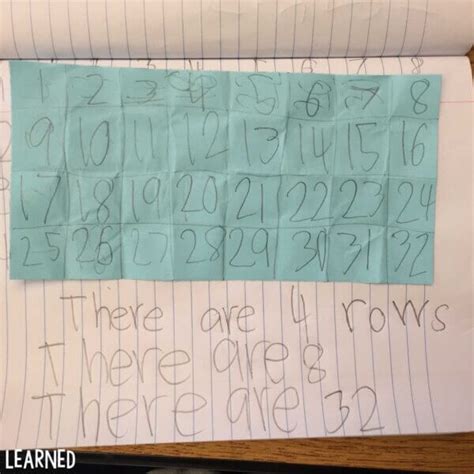 1 2 3 4 5 6 7 8
9 10 11 12 13 14 15 16
17 18 19 20 21 22 23 24
25 26 27 28 29 30 31 32
There are 4 rows
There are 8
There are 32
LEARNED